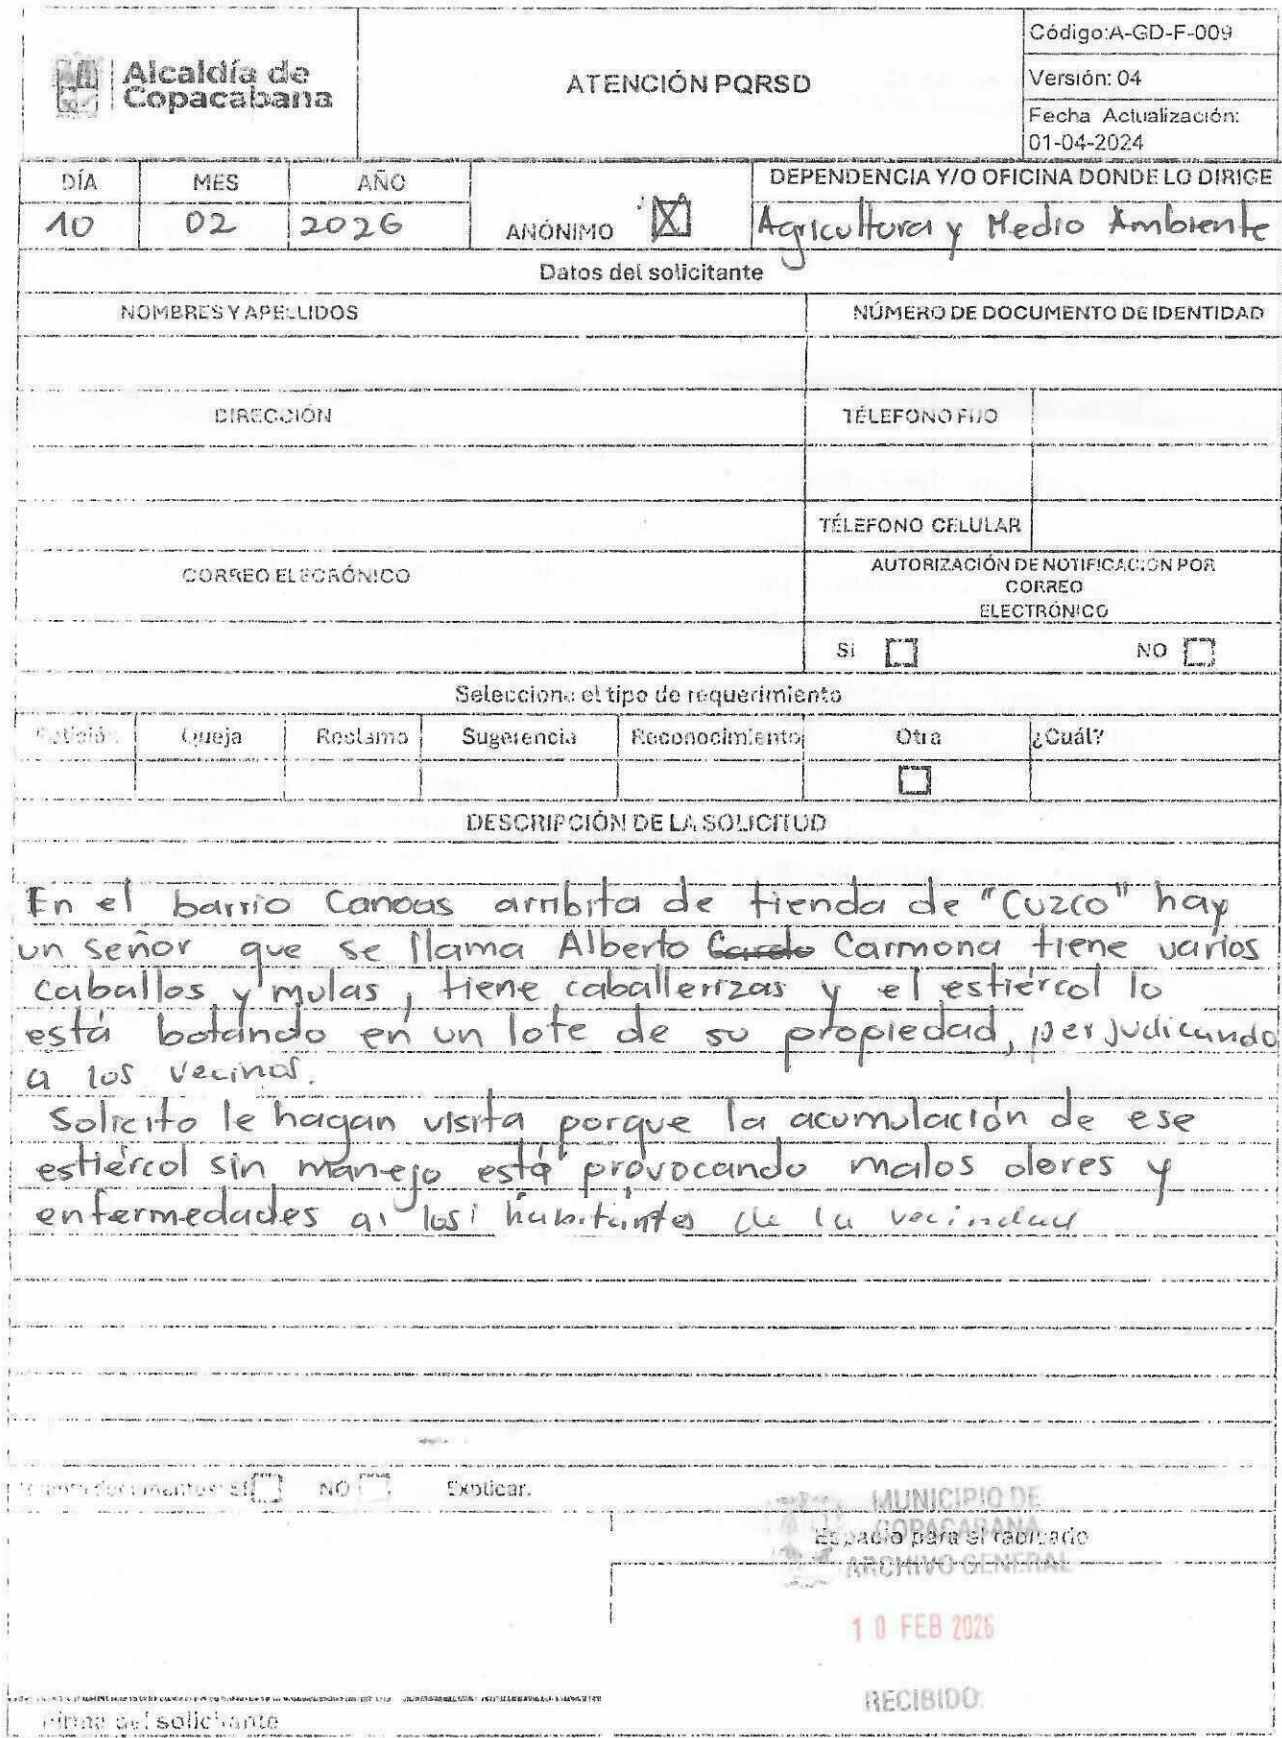 Alcaldía de
Copacabana
ATENCIÓN PQRSD
Código:A-GD-F-009
Versión: 04
Fecha Actualización:
01-04-2024
DÍA MES AÑO
10 02 2026
ANÓNIMO X
DEPENDENCIA Y/O OFICINA DONDE LO DIRIGE
Agricultura y Medio Ambiente
Datos del solicitante
NOMBRES Y APELLIDOS NÚMERO DE DOCUMENTO DE IDENTIDAD
DIRECCIÓN TÉLEFONO FIJO
TÉLEFONO CELULAR
CORREO ELECRÓNICO
AUTORIZACIÓN DE NOTIFICACIÓN POR
CORREO
ELECTRÓNICO
SI NO
Seleccione el tipo de requerimiento
Petición Queja Reclamo Sugerencia Reconocimiento Otra ¿Cuál?
DESCRIPCIÓN DE LA SOLICITUD
En el barrio Canoas arribita de tienda de "Cuzco" hay
un señor que se llama Alberto Carmona tiene varios
caballos y mulas, tiene caballerizas y el estiércol lo
está botando en un lote de su propiedad, perjudicando
a los vecinos.
Solicito le hagan visita porque la acumulación de ese
estiércol sin manejo está provocando malos olores y
enfermedades a los habitantes de la vecindad
documentos: SI NO Explicar.
MUNICIPIO DE
COPACABANA
Espacio para el radicado
ARCHIVO GENERAL
10 FEB 2026
RECIBIDO
Firma del solicitante